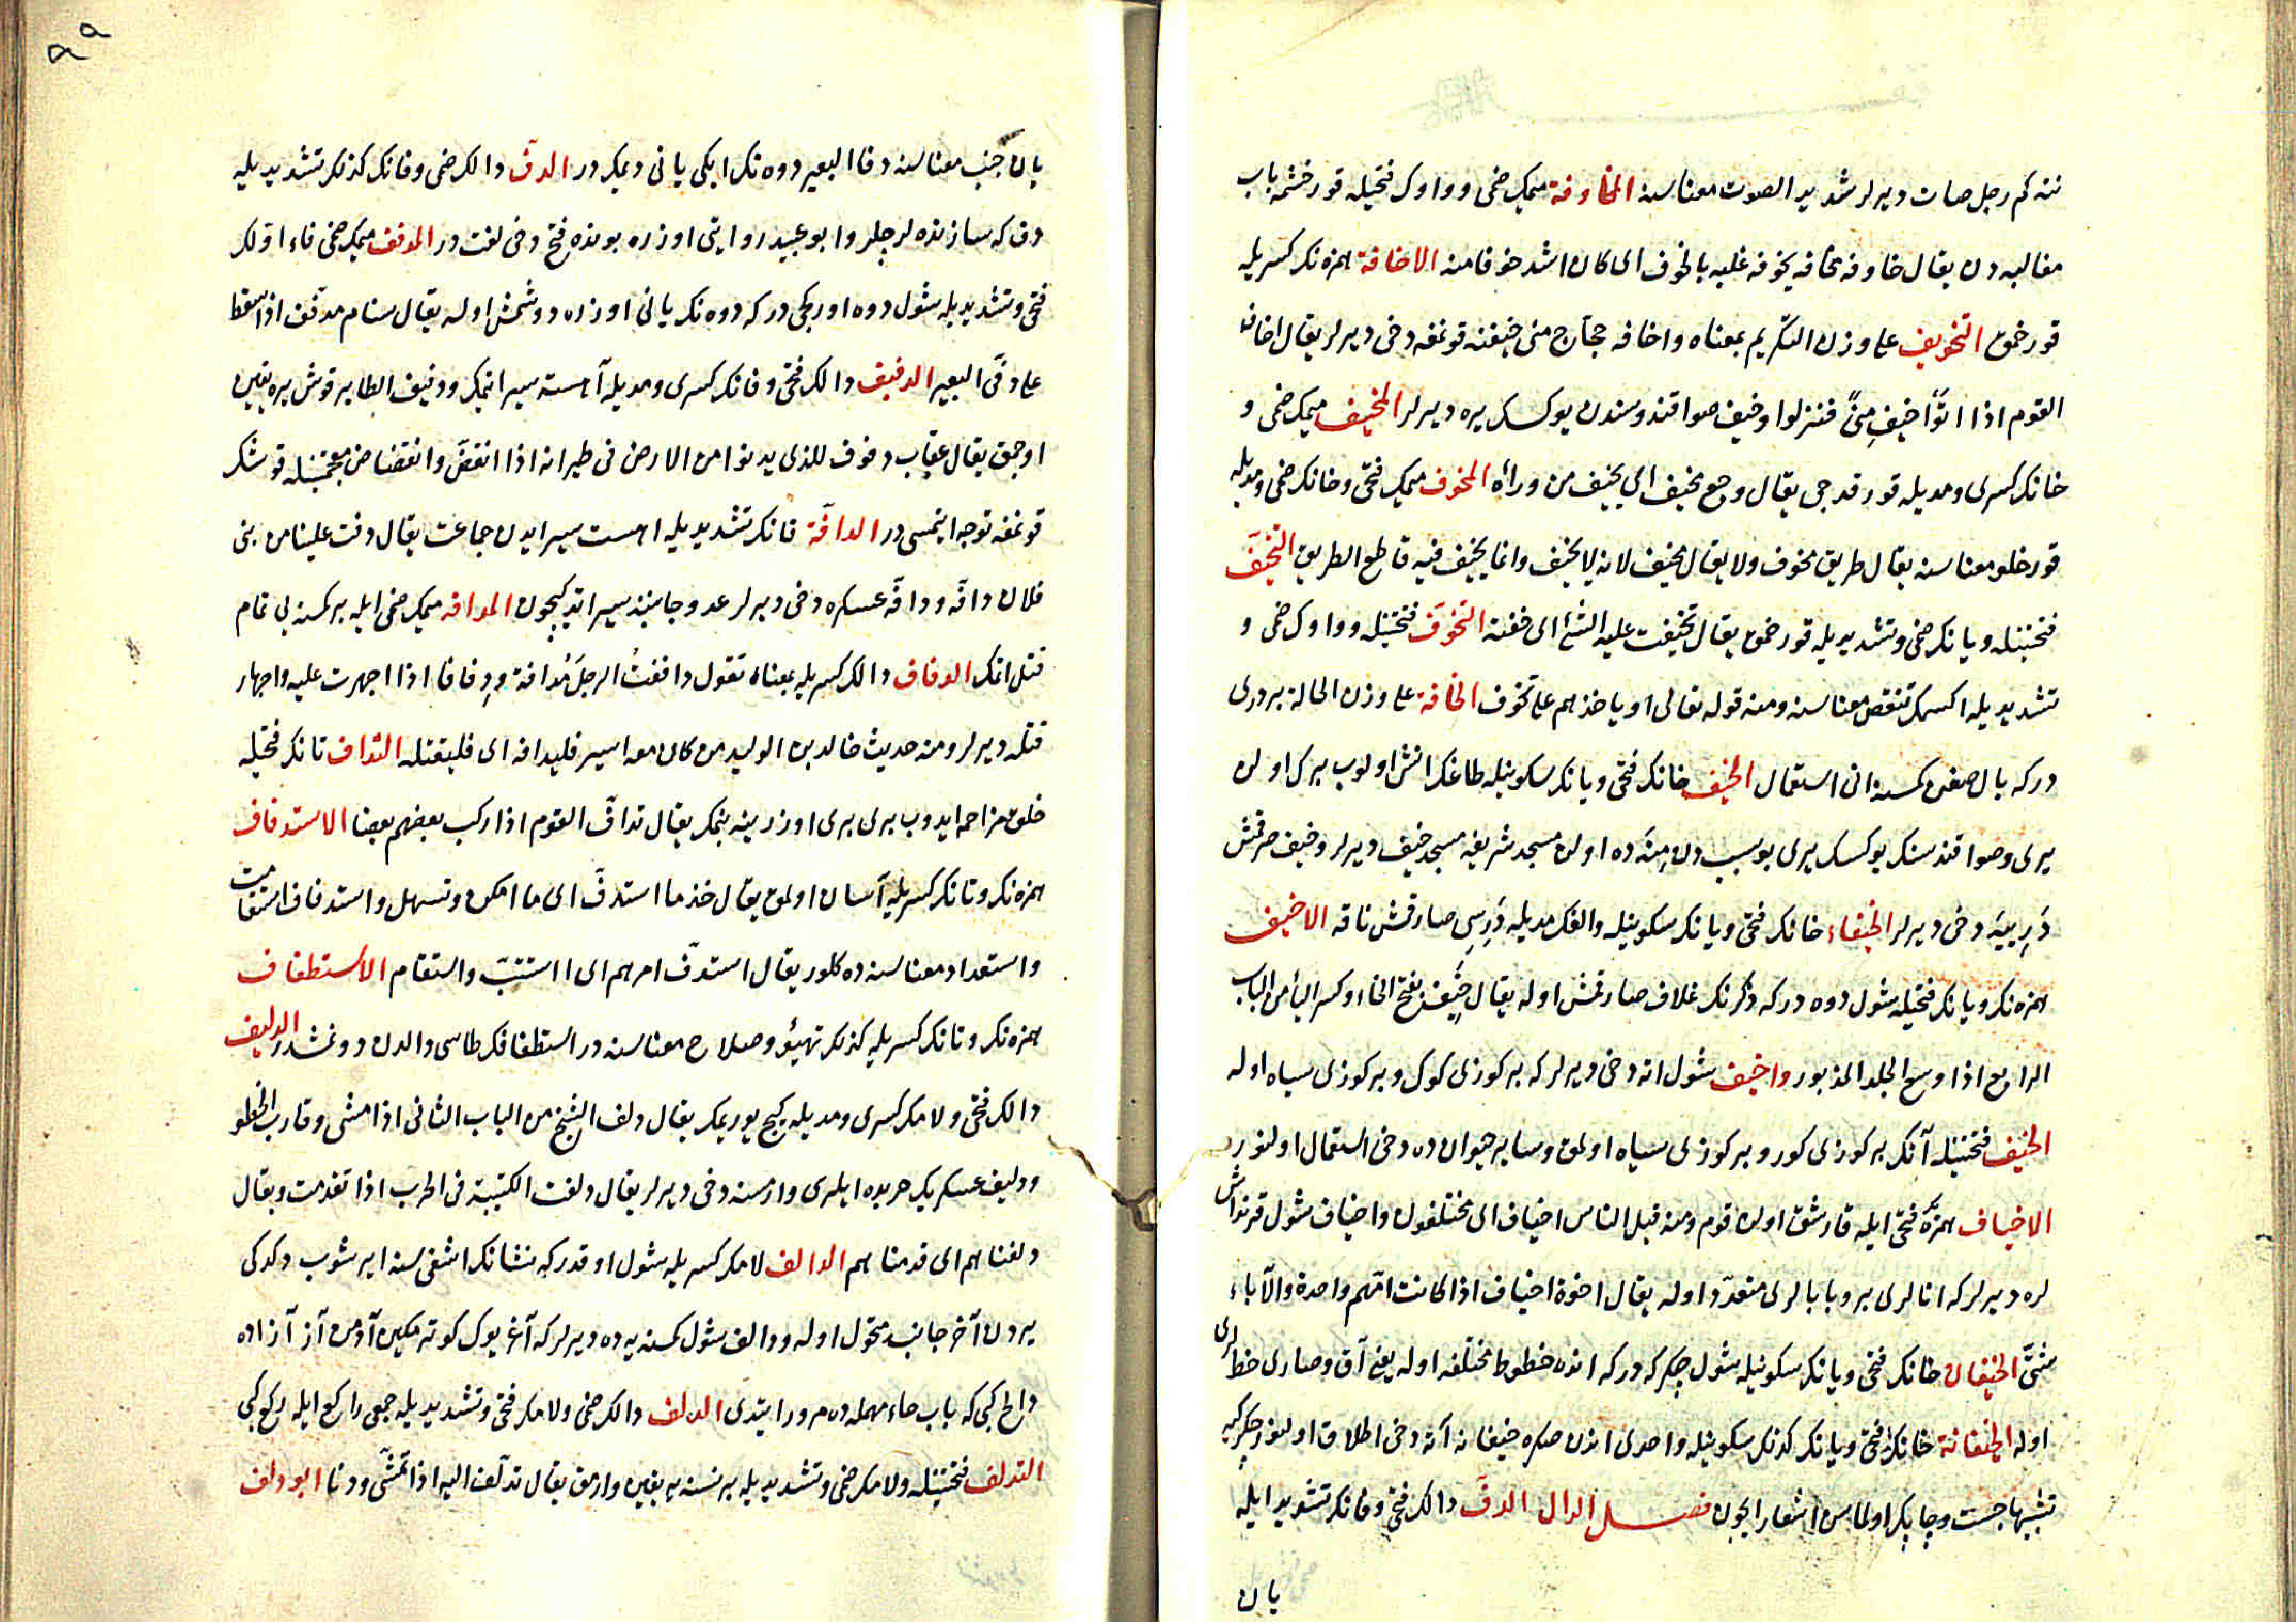 ننه كم رجل صات ديرلر شديد الصوت معناسنه المخاوفة ميمك ضمى وواوك فتحيله قورخشمه باب
مغالبه دن يقال خاوفه مخافه يخوفه غلبه بالخوف اى كان اشد خوفا منه الاخافة همزه نك كسريله
قورخمق التخويف على وزن التكريم بمعناه واخافه حجاج منى خيفنه قونمغه دخى ديرلر يقال اخاف
القوم اذا اتوا خيف منى فنزلوا وخيف صو اقندوسندن يوكسك يره ديرلر المخيف ميمك ضمى و
خانك كسرى ومديله قورقدجى يقال وجع مخيف اى يخيف من وراه المخوف ميمك فتحى وخانك ضمى ومديله
قورخلو معناسنه يقال طريق مخوف ولا يقال مخيف لانه لا يخيف وانما يخيف فيه قاطع الطريق التخيف
فتحتينله ويانك ضمى وتشديديله قورخمق يقال تخيفت عليه الشئ اى خفته التخوف فتحتينله وواوك ضمى و
تشديديله اكسمك تنقص معناسنه ومنه قوله تعالى او ياخذهم على تخوف الخافة على وزن الحالة بر دريدن
دركه بال صغن كمسنه انى استعمال الخيف خانك فتحى ويانك سكونيله طاغك انش اولوب برك اولن
يرى وصو اقندسنك يوكسك يرى بو سببدن منه ده اولن مسجد شريفه مسجد خيف ديرلر وخيف صرقمش
درييه دخى ديرلر الخيفاء خانك فتحى ويانك سكونيله والفك مديله درسى صارقمش ناقه الاخيف
همزه نك ويانك فتحيله شول دوه دركه ذكرنك غلاف صارقمش اوله يقال خيف بفتح الخاء وكسر الياء من الباب
الرابع اذا وسع الجلد المذبور واخيف شول اته دخى ديرلر كه بر كوزى كوك وبر كوزى سياه اوله
الخيف فتحتينله آتك بر كوزى كور وبر كوزى سياه اولمق وساير حيوان ده دخى استعمال اولنور
الاخياف همزه فتحى ايله قارشق اولن قوم ومنه قيل الناس اخياف اى مختلفون واخياف شول قرنداش
لره ديرلر كه انالرى بر وبابالرى متعدد اوله يقال اخوة اخياف اذا كانت امهم واحدة والآباء
شتى الخيفان خانك فتحى ويانك سكونيله شول چكركه دركه انده خطوط مختلفه اوله يعنى آق وصارى خطلرى
اوله الخيفانة خانك فتحى ويانك كذلك سكونيله واحدى اندن صكره خيفانه آته دخى اطلاق اولنور چكركيه
تشبيها چست وچابك اولماسن اشعار ايچون فصل الدال الدف دالك فتحى وفانك تشديد ايله
يان
٩٩
يان جنب معناسنه دفا البعير دوه نك ايكى يانى ديمكدر الدف دالك ضمى وفانك كذلك تشديديله
دف كه سازنده لر چلر وابو عبيد روايتى اوزره بونده فتح دخى لغت در المدفف ميمك ضمى فاء اولك
فتحى وتشديديله شول دوه اوركجى دركه دوه نك يانى اوزره دوشمش اوله يقال سنام مدفف اذا سقط
على دفى البعير الدفيف دالك فتحى وفانك كسرى ومديله آهسته سير اتمك ودفيف الطاير قوش يره يقين
اوچمق يقال عقاب دفوف للذى يدنوا من الارض فى طيرانه اذا انقض وانقضاض معجمتينله قوشك
قونمغه توجه ايتمسى در الدافة فانك تشديديله اهست سير ايدن جماعت يقال دفت علينا من بنى
فلان دافة ودافه عسكره دخى ديرلر عدو جانبنه سير ايتدكيچون المدافه ميمك ضمى ايله بر كمسنه يى تمام
قتل اتمك الدفاف دالك كسريله بمعناه تقول داففت الرجل مدافة ودفافا اذا اجهرت عليه واجهاد
قتله ديرلر ومنه حديث خالد بن الوليد من كان معه اسير فليدافه اى فليقتله التداف تانك فتحيله
خلق مزاحمه ايدوب برى برى اوزرينه بنمك يقال تداف القوم اذا ركب بعضهم بعضا الاستدفاف
همزه نك وتانك كسريله آسان اولمق يقال خذ ما استدف اى ما امكن وتسهل واستدفاف استقامت
واستعداد معناسنه ده كلور يقال استدف امرهم اى استتب واستقام الاستطفاف
همزه نك وتانك كسريله كذلك تهيؤ وصلاح معناسنه در استطفافك طاسى دالدن دونمشدر الدليف
دالك فتحى ولامك كسرى ومديله كيج يوريمك يقال دلف الشيخ من الباب الثانى اذا مشى وقارب الخطو
ودليف عسكر يك حربه ايلرى وارمسنه دخى ديرلر يقال دلفت الكتيبة فى الحرب اذا تقدمت ويقال
دلفناهم اى قدمناهم الدالف لامك كسريله شول اوقدر كه نشانك اشغى سنه ايرشوب دكدكى
يردن آخر جانبه متحول اوله ودالف شول كمسنه يه ده ديرلر كه آغر يوك كوتورمكن آدمن آز آز آده
دالح كبى كه باب حاء مهمله ده مرور ايتدى الدلف دالك ضمى ولامك فتحى وتشديديله جمعى راكع ايله ركع كبى
التدلف فتحتينله ولامك ضمى وتشديديله بر نسنه يه يقين وارمق يقال تدلف اليه اذا تمشى ودنا ابو دلف